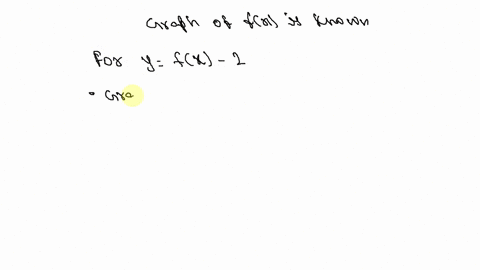 Graph of f(x) is known
For y = f(x) - 2
• Gra